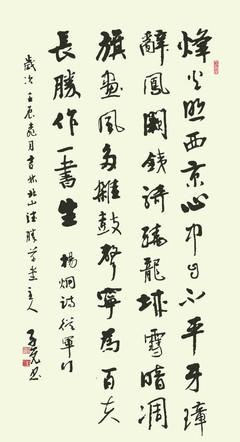 烽火照西京心中自不平牙璋
辭鳳闕鐵騎繞龍城雪暗凋
旗畫風多雜鼓聲寧為百夫
長勝作一書生
楊炯詩從軍行
歲次壬辰月書於北山勝堂主人